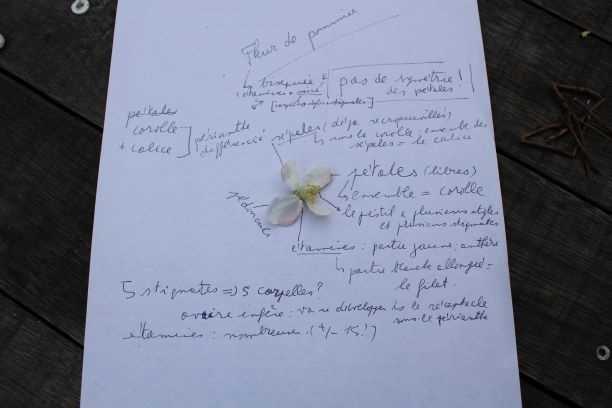 Fleur de pommier
↳ bisexuée
pas de symétrie !
des pétales !
pétales
corolle
+ calice
périanthe
différencié
sépales (déjà recroquevillés)
↳ sous la corolle, ensemble des
sépales = le calice
pétales (libres)
↳ ensemble = corolle
le pistil à plusieurs styles
et plusieurs stigmates
pédoncule
étamines : partie jaune : anthère
↳ partie blanche allongée =
le filet.
5 stigmates => 5 carpelles ?
ovaire infère : va se développer ds le réceptacle
sous le périanthe
étamines : nombreuses (+/- 15 !)